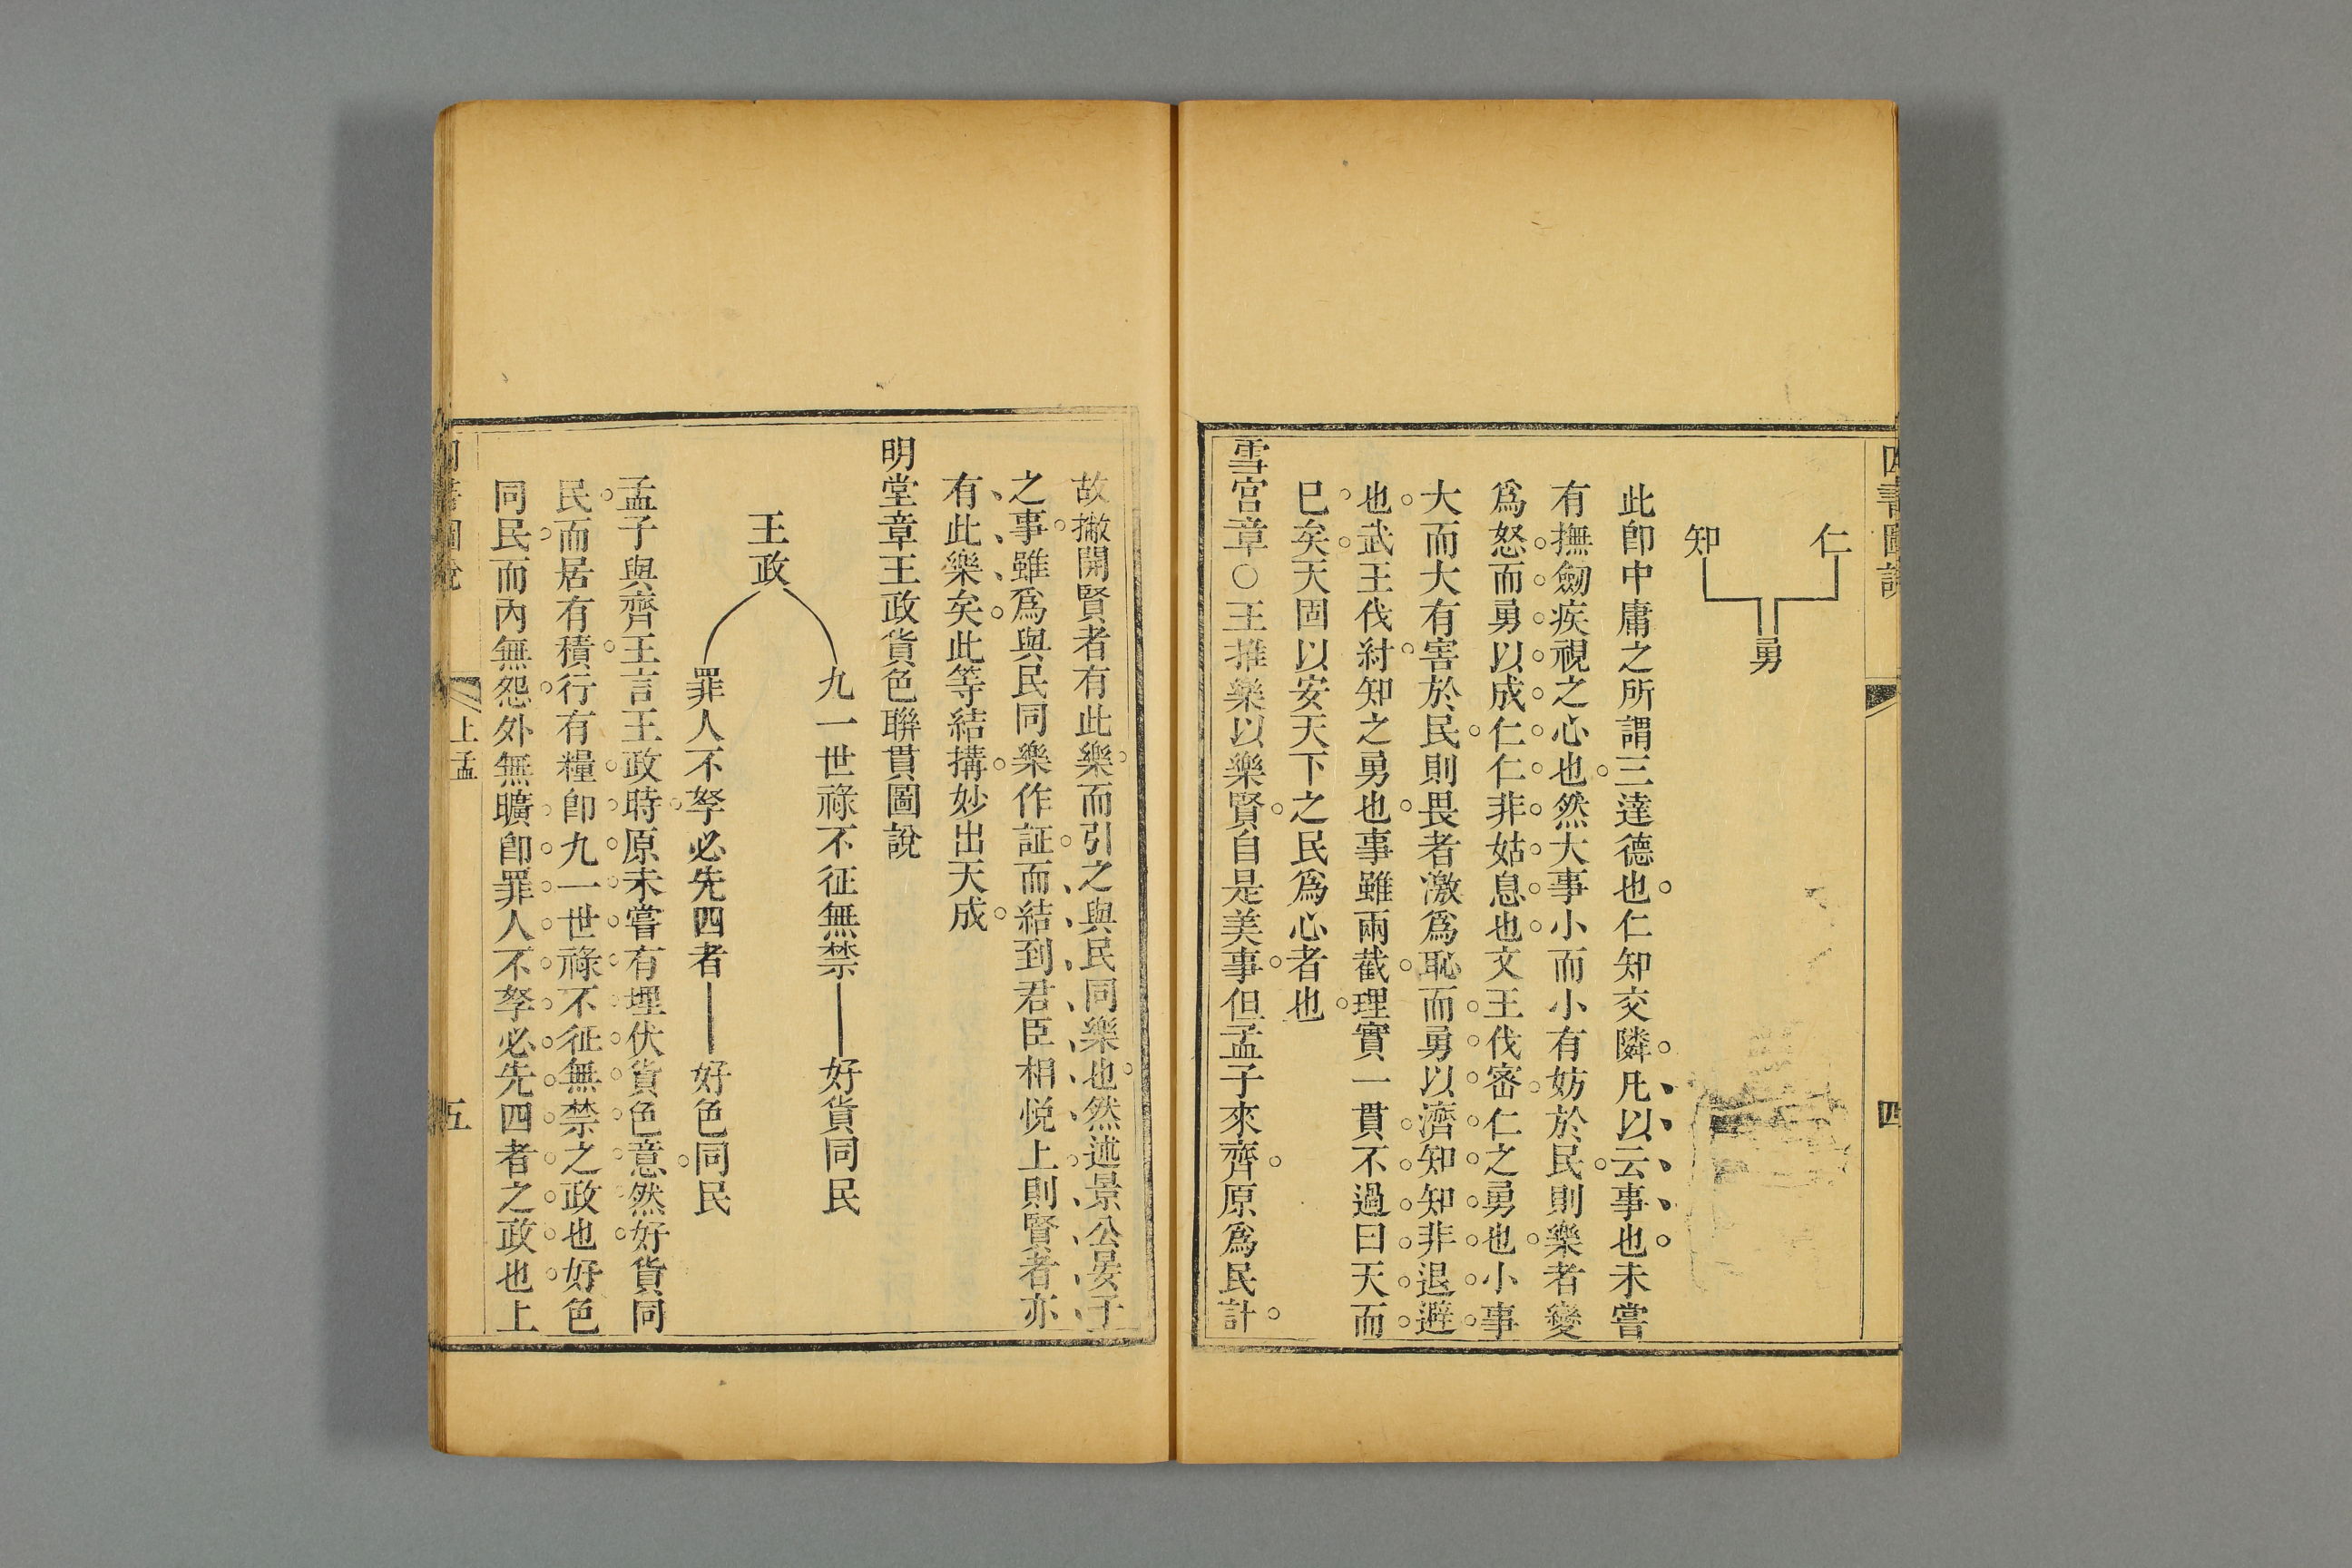 四書圖說
四
仁
知
勇
此卽中庸之所謂三達德也仁知交隣凡以云事也未嘗
有撫劒疾視之心也然大事小而小有妨於民則樂者變
爲怒而勇以成仁仁非姑息也文王伐密仁之勇也小事
大而大有害於民則畏者激爲恥而勇以濟知知非退避
也武王伐紂知之勇也事雖兩截理實一貫不過曰天而
已矣天固以安天下之民爲心者也
雪宮章○王推樂以樂賢自是美事但孟子來齊原爲民計
故撇開賢者有此樂而引之與民同樂也然述景公晏子
之事雖爲與民同樂作証而結到君臣相悅上則賢者亦
有此樂矣此等結搆妙出天成
明堂章王政貨色聯貫圖說
王政
九一世祿不征無禁
好貨同民
罪人不孥必先四者
好色同民
孟子與齊王言王政時原未嘗有埋伏貨色意然好貨同
民而居有積行有糧卽九一世祿不征無禁之政也好色
同民而內無怨外無曠卽罪人不孥必先四者之政也上
四書圖說
上孟
五